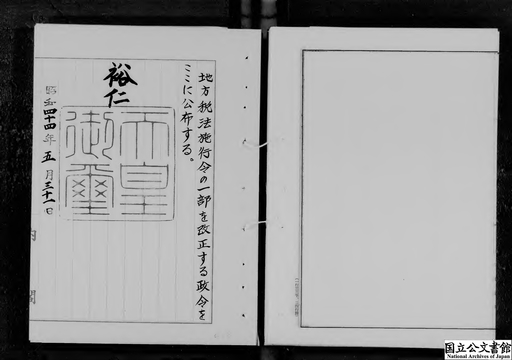 地方税法施行令の一部を改正する政令を
ここに公布する。
裕仁
天皇
御璽
昭和四十四年五月三十一日
内閣
国立公文書館
National Archives of Japan